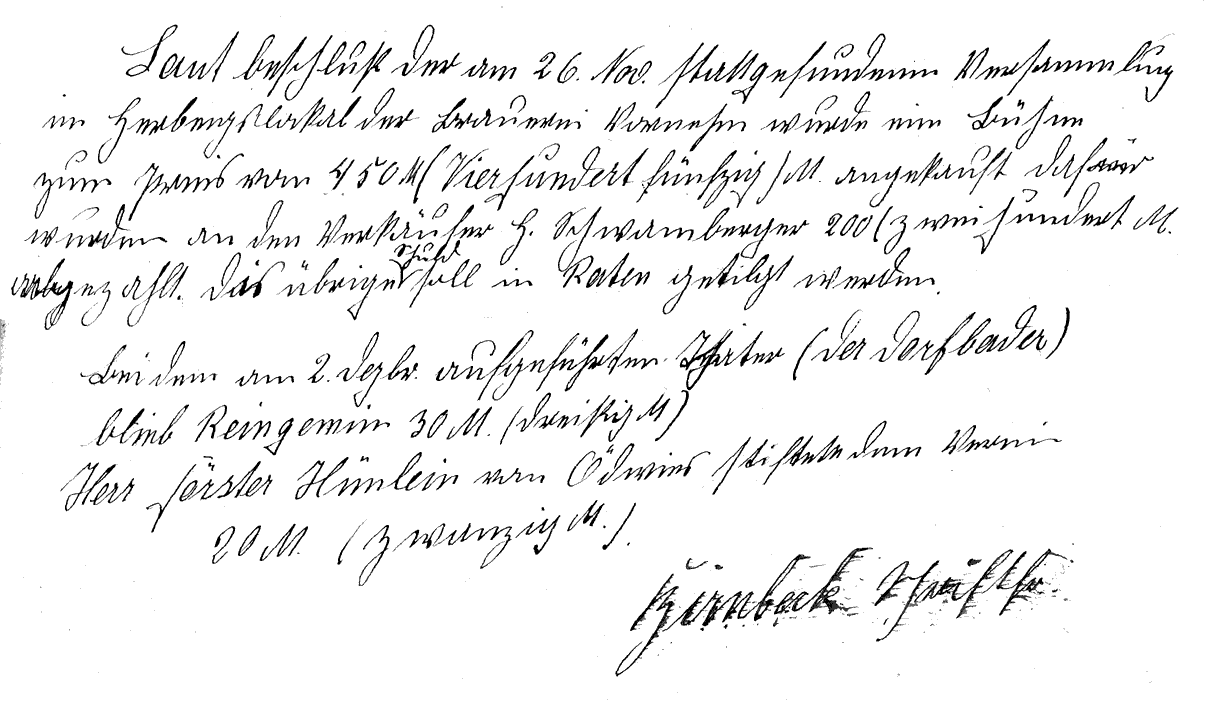 Laut beschluß der am 26. Nov. stattgefundenen Versammlung
im Herbergslokal der Brauerei Vornehm wurde eine Bühne
zum Preis von 450 M (Vierhundert fünfzig) M. angekauft dafür
wurden an den Verkäufer H. Schwamberger 200 (zweihundert M.
abgezahlt. Das übrige Schuld soll in Raten getilgt werden.
Bei dem am 2. Dezbr. aufgeführten Theater (der Dorfbader)
blieb Reingewinn 30 M. (dreißig M)
Herr Förster Hünlein von Ödwies stiftete dem Verein
20 M. (zwanzig M.).
Schriftfr.